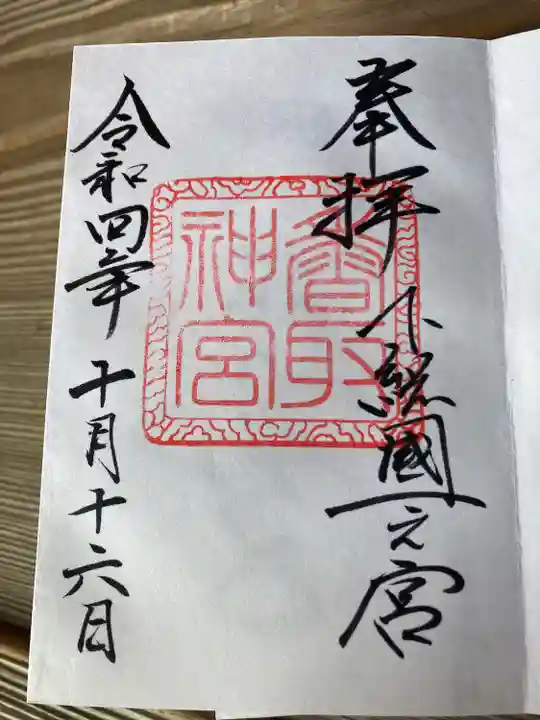 奉拝 下総國一之宮
香取
神宮
令和四年 十月十六日